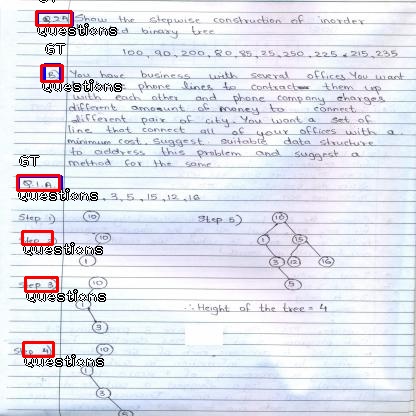 GT
Q.2A Show the stepwise construction of inorder
Questions
binary tree
GT
100, 90, 200, 80, 85, 25, 250, 225, 215, 235
B) You have business with several offices You want
Questions
phone lines to contract them up
with each other and phone company charges
different amount of money to connect
different pair of city. You want a set of
line that connect all of your offices with a
minimum cost. suggest suitable data structure
to address this problem and suggest a
method for the same.
GT
Q.1.A
Questions
3, 5, 15, 12, 16
Step 1) 10
Step 5) 10
1 15
3 12 16
5
Questions
10
1
Step 3
Questions
10
1
3
∴ Height of the tree = 4
Step 4)
Questions
10
1
3
5